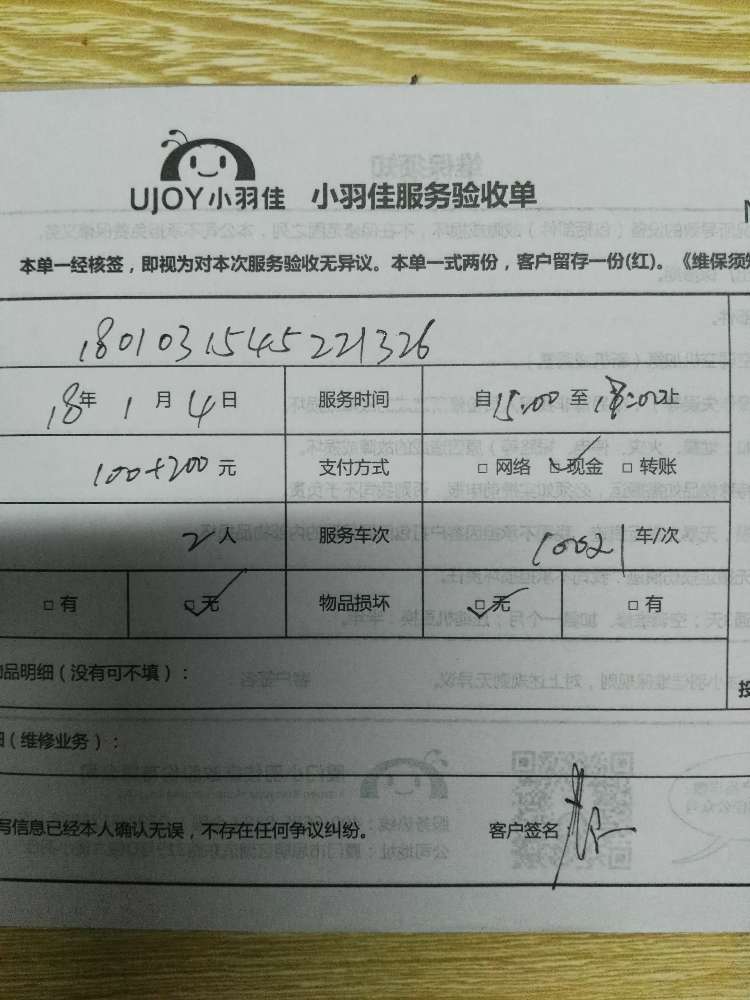 UJOY小羽佳 小羽佳服务验收单
本单一经核签，即视为对本次服务验收无异议。本单一式两份，客户留存一份(红)。《维保须知
1801031545221326
18年 1月 4日 服务时间 自15:00至18:00止
100+200元 支付方式 □ 网络 ☑ 现金 □ 转账
2人 服务车次 10021车/次
□ 有 ☑ 无 物品损坏 ☑ 无 □ 有
品明细（没有可不填）：
（维修业务）：
写信息已经本人确认无误，不存在任何争议纠纷。 客户签名：